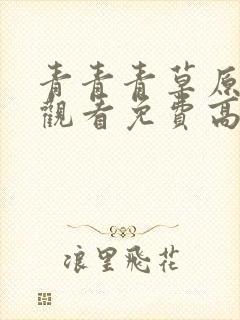 青青青草原
觀看免費高
浪里飛花